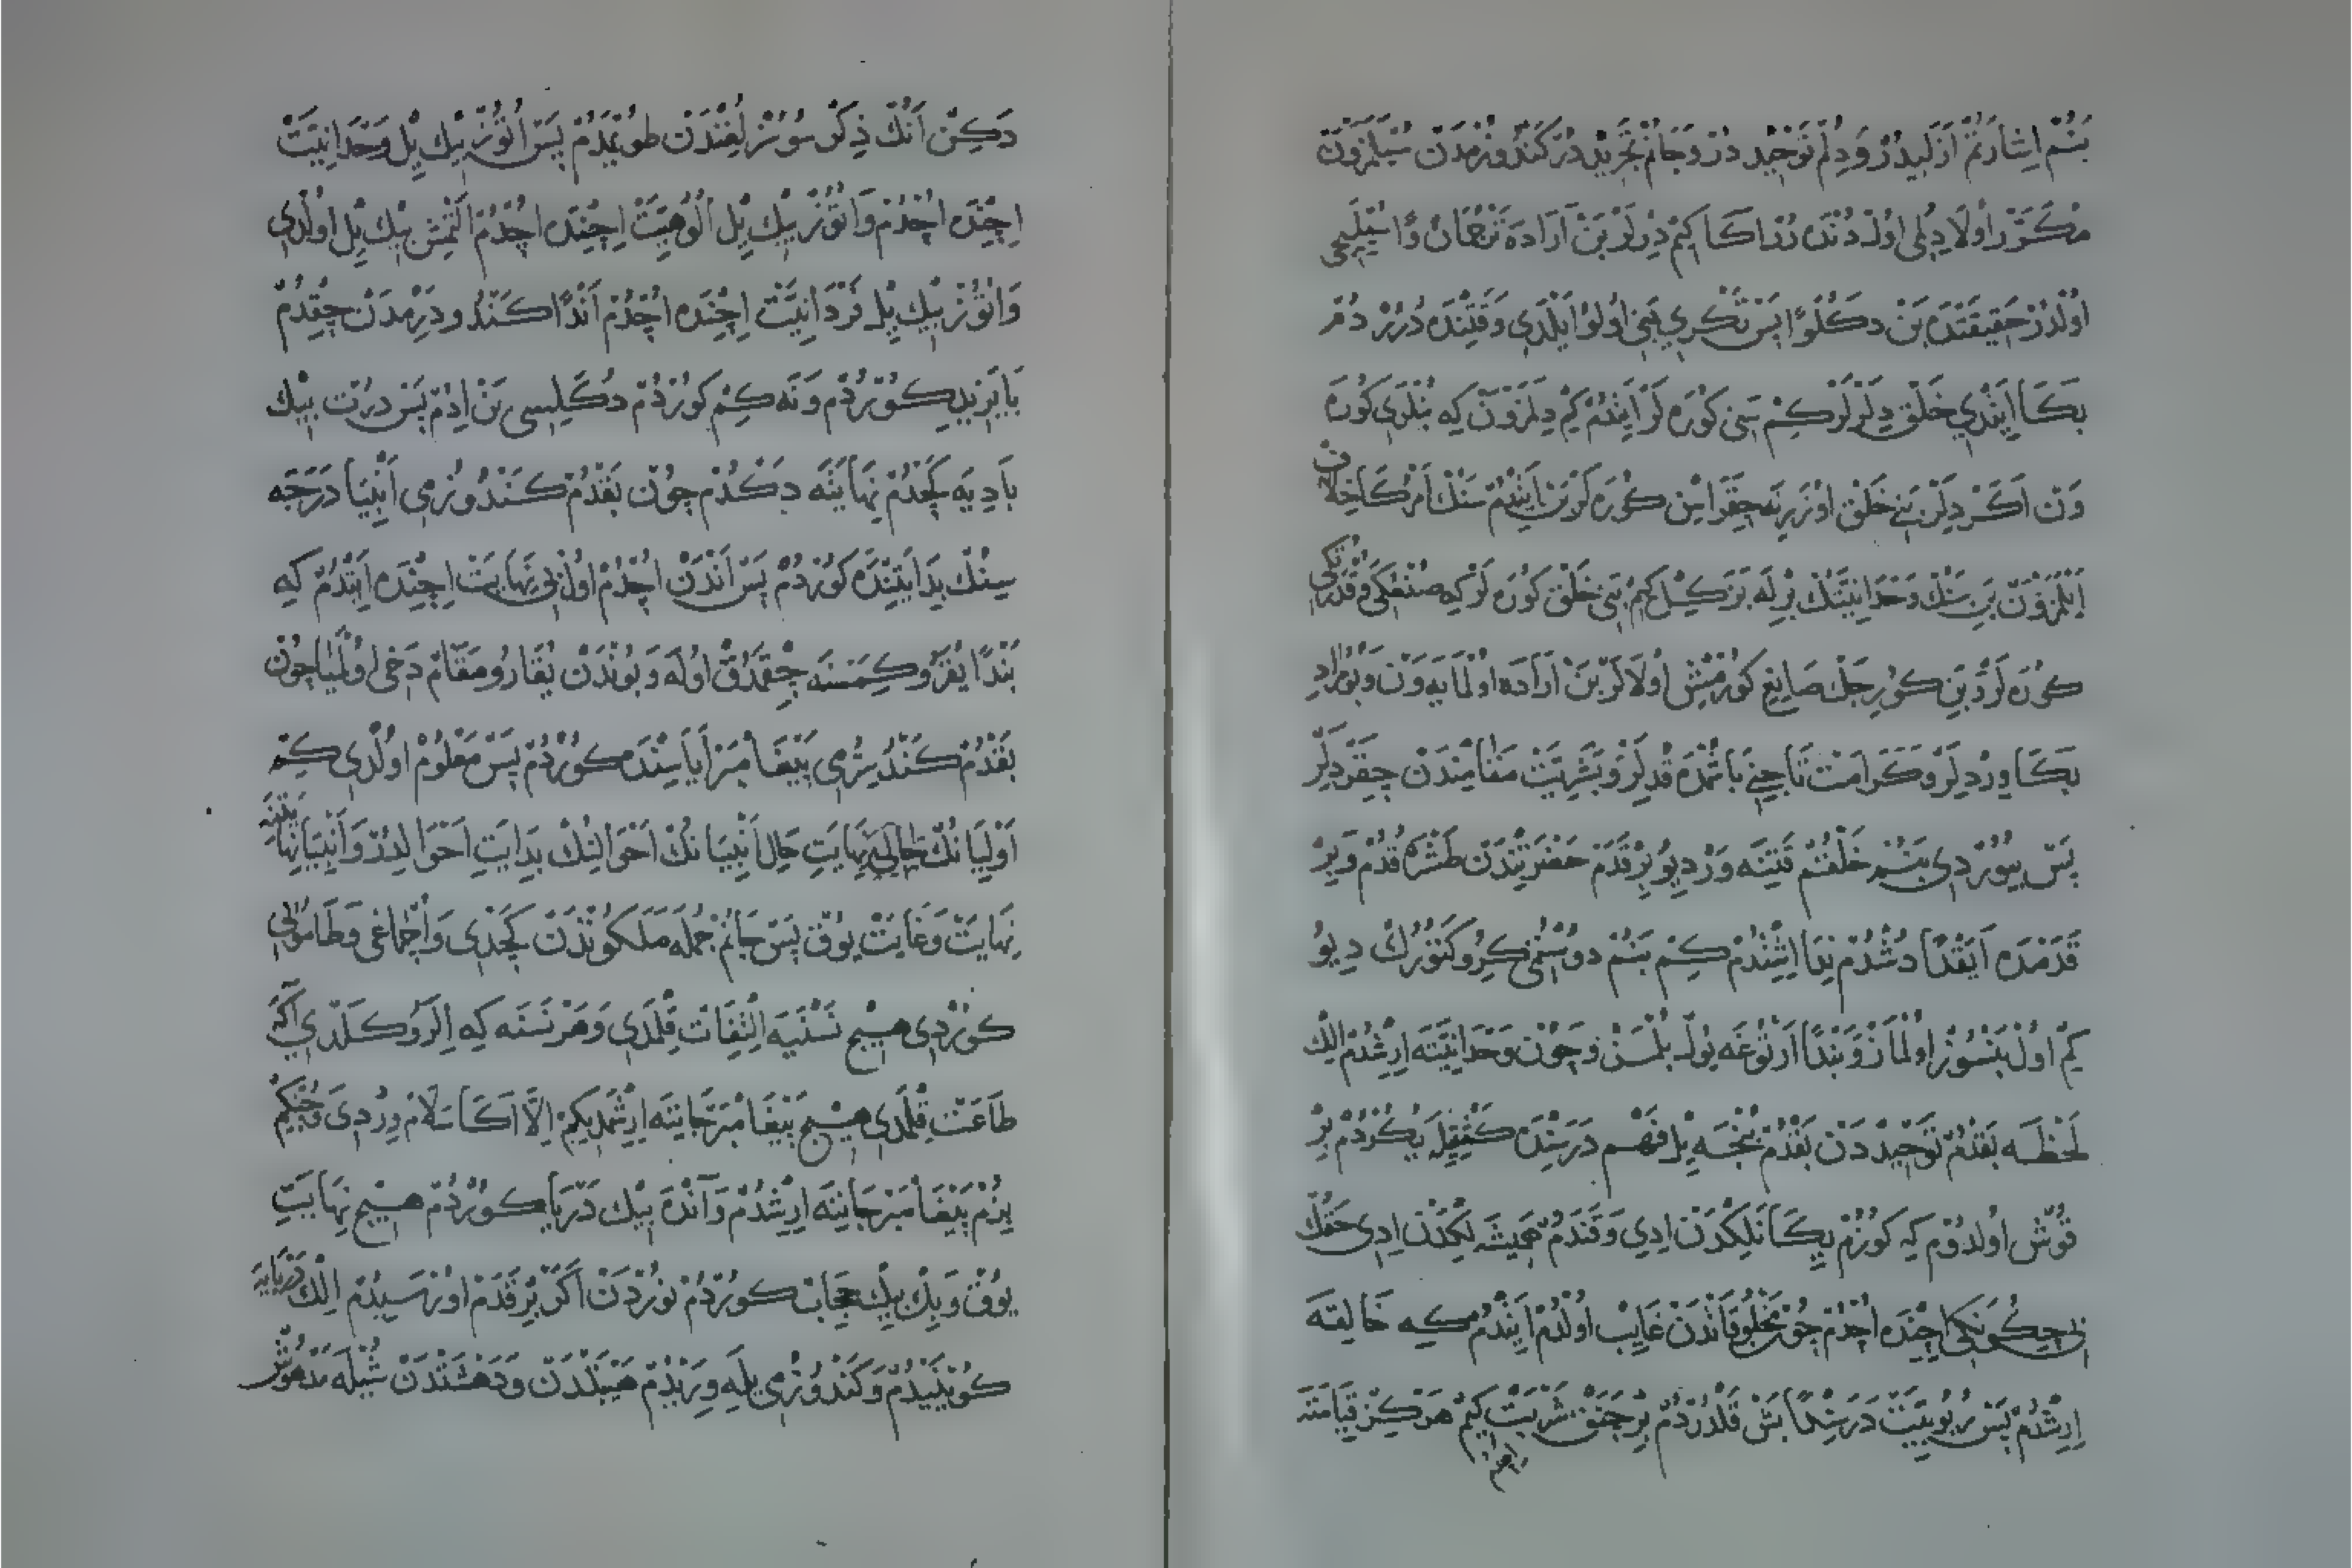 بَنُمْ اِشَارَتُمْ اَزَلِيدُرْ وَدِلُمْ تَوْحِيد دُرْ وَجَانُمْ تَجْرِيدْ دُرْ كَنْدُوزُمْدَنْ سُيْلَمَزْوَنْ
مُكَرَّرْ اَوْلَا دِلُمْ اُولْ دُنْدَه دُرْ اَكَا كِمْ دِرْلَرْ بَنْ اَرَادَه تَرْجُمَانْ وَاسُيْلَيِجِى
اُولْدُرْ حَقِيقَتْدَه بَنْ دَكُلْوَاَ پَسْ تَكْرِي بَنِى اُولُو اَيْلَدِي وَقَتِنْدَه دُرُرْدُمْ
بَكَا اَيِتْدِي خَلْقْ دِلَرْلَرْ كِمْ سَنِى كُورَه لَرْ اَيِتْدُمْ كِمْ دِلَمَزْوَنْ كِه بُنْلَرِي كُورَه
وَنْ اَكَرْ دِلَرْسَنْ بَنِي خَلْقْ اُوزَرِنَه چِقَرَاسِنْ كُورَه لَرْ بَنْ اَيِتْدُمْ سَنْكْ اَمْرُكَا خِلَافْ
اَيْلَمَزْوَنْ بَنِ سَنْكْ وَحْدَانِيَّتُكْ بِرْلَه بَزَكِلْ كِمْ بَنِى خَلْقْ كُورَه لَرْ كِه صُنْعُكِى وَقُدْرَتُكِى
كُورَه لَرْ دُبَنِ كُورِجَكْ صَانِعِ كُورْمِشْ اُولَا لَرْ بَنْ اَرَادَه اُولْمَايَه وَنْ وَبُو مُرَادِ
بَكَا وِرْدِلَرْ وَكَرَامَتْ تَاجِنِى بَاشُمْدَه قُدِلَرْ وَبَشَرِيَّتْ مَقَامِنْدَنْ چِقَرْدِلَرْ
پَسْ بُيُورْدِى بَنُمْ خَلْقُمْ قَتِنَه وَرْ دِيُو بِرْ قَدَمْ حَضْرَتِنْدَنْ طَشْرَه قُدُمْ وَبِرْ
قَدَمْدَه اَيَقْدَا دُشْدُمْ نِدَا اِشِتْدُمْ كِمْ بَنُمْ دوُسْتُمِى كِرُو كَتُورُكْ دِيُو
كِمْ اُولْ بَنْسُوزْ اُولْمَازْ وَبَنْدَا اَرْتُوغَه يُولْ بُلْمَسْ وَچُونْ وَحْدَانِيَّتَه اِرِشْدُمْ اِلْكْ
لَحْظَه بَقْدُمْ تَوْحِيدْ دَنْ بَقْدُمْ نِجَه يِلْ فَهْم دَرَسِنْدَنْ كَنْتِيلَه يُكُرْدُمْ بِرْ
قُوشْ اُولْدُومْ كِه كُوزُمْ بِكَانَلِكْدَنْ اِدِي وَقَنَدُمْ هَمِيشَه لِكْدَنْ اِدِى حَقُّكْ
بِى چِكُونَكِى اِچِنْدَه اُچْدُمْ چُونْ مَخْلُوقَاتْدَنْ غَايِبْ اُولْدُمْ اَيِتْدُمْ كِه خَالِقَه
اِرِشْدُمْ پَسْ رُبُوبِيَّتْ دَرَسِنْدَا بَشْ قَلْدُرْدُمْ بِرْ چَنَقْ شَرْبَتْ اِچْدُمْ كِمْ هَرْكِزْ قِيَامَتَه
دَكِنْ اَنُكْ ذِكْرِ سُوزْلُغِنْدَنْ طُويْمَدُمْ پَسْ اُتُوزْ بِيكْ يِلْ وَحْدَانِيَّتْ
اِچِنْدَه اُچْدُمْ وَاتُوزْ بِيكْ يِلْ اُلُوهِيَّتْ اِچِنْدَه اُچْدُمْ اَلْتْمِشْ بِيكْ يِلْ اُولْدِي
وَاتُوزْ بِيكْ يِلْ فَرْدَانِيَّتْ اِچِنْدَه اُچْدُمْ اَنْدَا كَنْدُودَرْمْدَنْ چِقْدُمْ
بَايَزِيدِ كُورْدُمْ وَنَه كِمْ كُورْدُمْ دُكَلِيسِى بَنْ اِدُمْ پَسْ دُرْت بِيكْ
بَادِيَه كَچْدُمْ نِهَايَتَه دَكْدُمْ چُونْ بَقْدُمْ كَنْدُوزُمِى اَنْبِيَا دَرَجَه
سِنُكْ بِدَايَتِنْدَه كُورْدُمْ پَسْ اَنْدَنْ اُچْدُمْ اُولْ بِى نِهَايَتْ اِچِنْدَه اَيِتْدُمْ كِه
بَنْدَا يُقَرُو كِمَسْنَه چِقْمَدُقْ اُولَه وَبُونْدَنْ يُقَارُو مَقَامْ دَخِى اُولْمَيَا چُونْ
بَقْدُمْ كَنْدُ سِرُّمِى پَيْغَامْبَرْ اَيَاسِنْدَه كُورْدُمْ پَسْ مَعْلُومْ اُولْدِى كِمْ
اَوْلِيَانُكْ حَالِى نِهَايَتِ حَالِ اَنْبِيَانُكْ اَحْوَالِنُكْ بِدَايَتِ اَحْوَالِدُرْ وَاَنْبِيَا نِهَايَتِنَه
نِهَايَتْ وَغَايَتْ يُوقْ پَسْ جَانُمْ جُمْلَه مَلَكُوتْدَنْ كَچْدِى وَاُچْمَاغِى وَطَامُولِى
كُورْدِى هِيچْ نَسْنَيَه اِلْتِفَاتْ قِلْمَدِى وَهَرْ نَسْنَه كِه اِلَرُو كَلْدِي اَكَا
طَاعَتْ قِلْمَدِى هِيچْ پَيْغَامْبَرْ جَانِنَه اِرِشْمَدِ كِمْ اِلَّا اَكَا سَلَامْ وِرْدِى وَچُنْكِمْ
بِزُمْ پَيْغَامْبَرْ جَانِنَه اِرِشْدُمْ وَاَنْدَه بِيكْ دَرْيَا كُورْدُمْ هِيچْ نِهَايَتِ
يُوقْ وَبِكْ بِيكْ حِجَابْ كُورْدُمْ نُورْدَنْ اَكَرْ بِرْ قَدَمْ اُورَسَيْدُمْ اِلْكْ دَرْيَايَه
كُويْنَيْدُمْ وَكَنْدُوزُمِى يَلَه وِرَيْدُمْ هَيْبَتْدَنْ وَدَهْشَتْدَنْ شُيْلَه مَدْهُوشْ